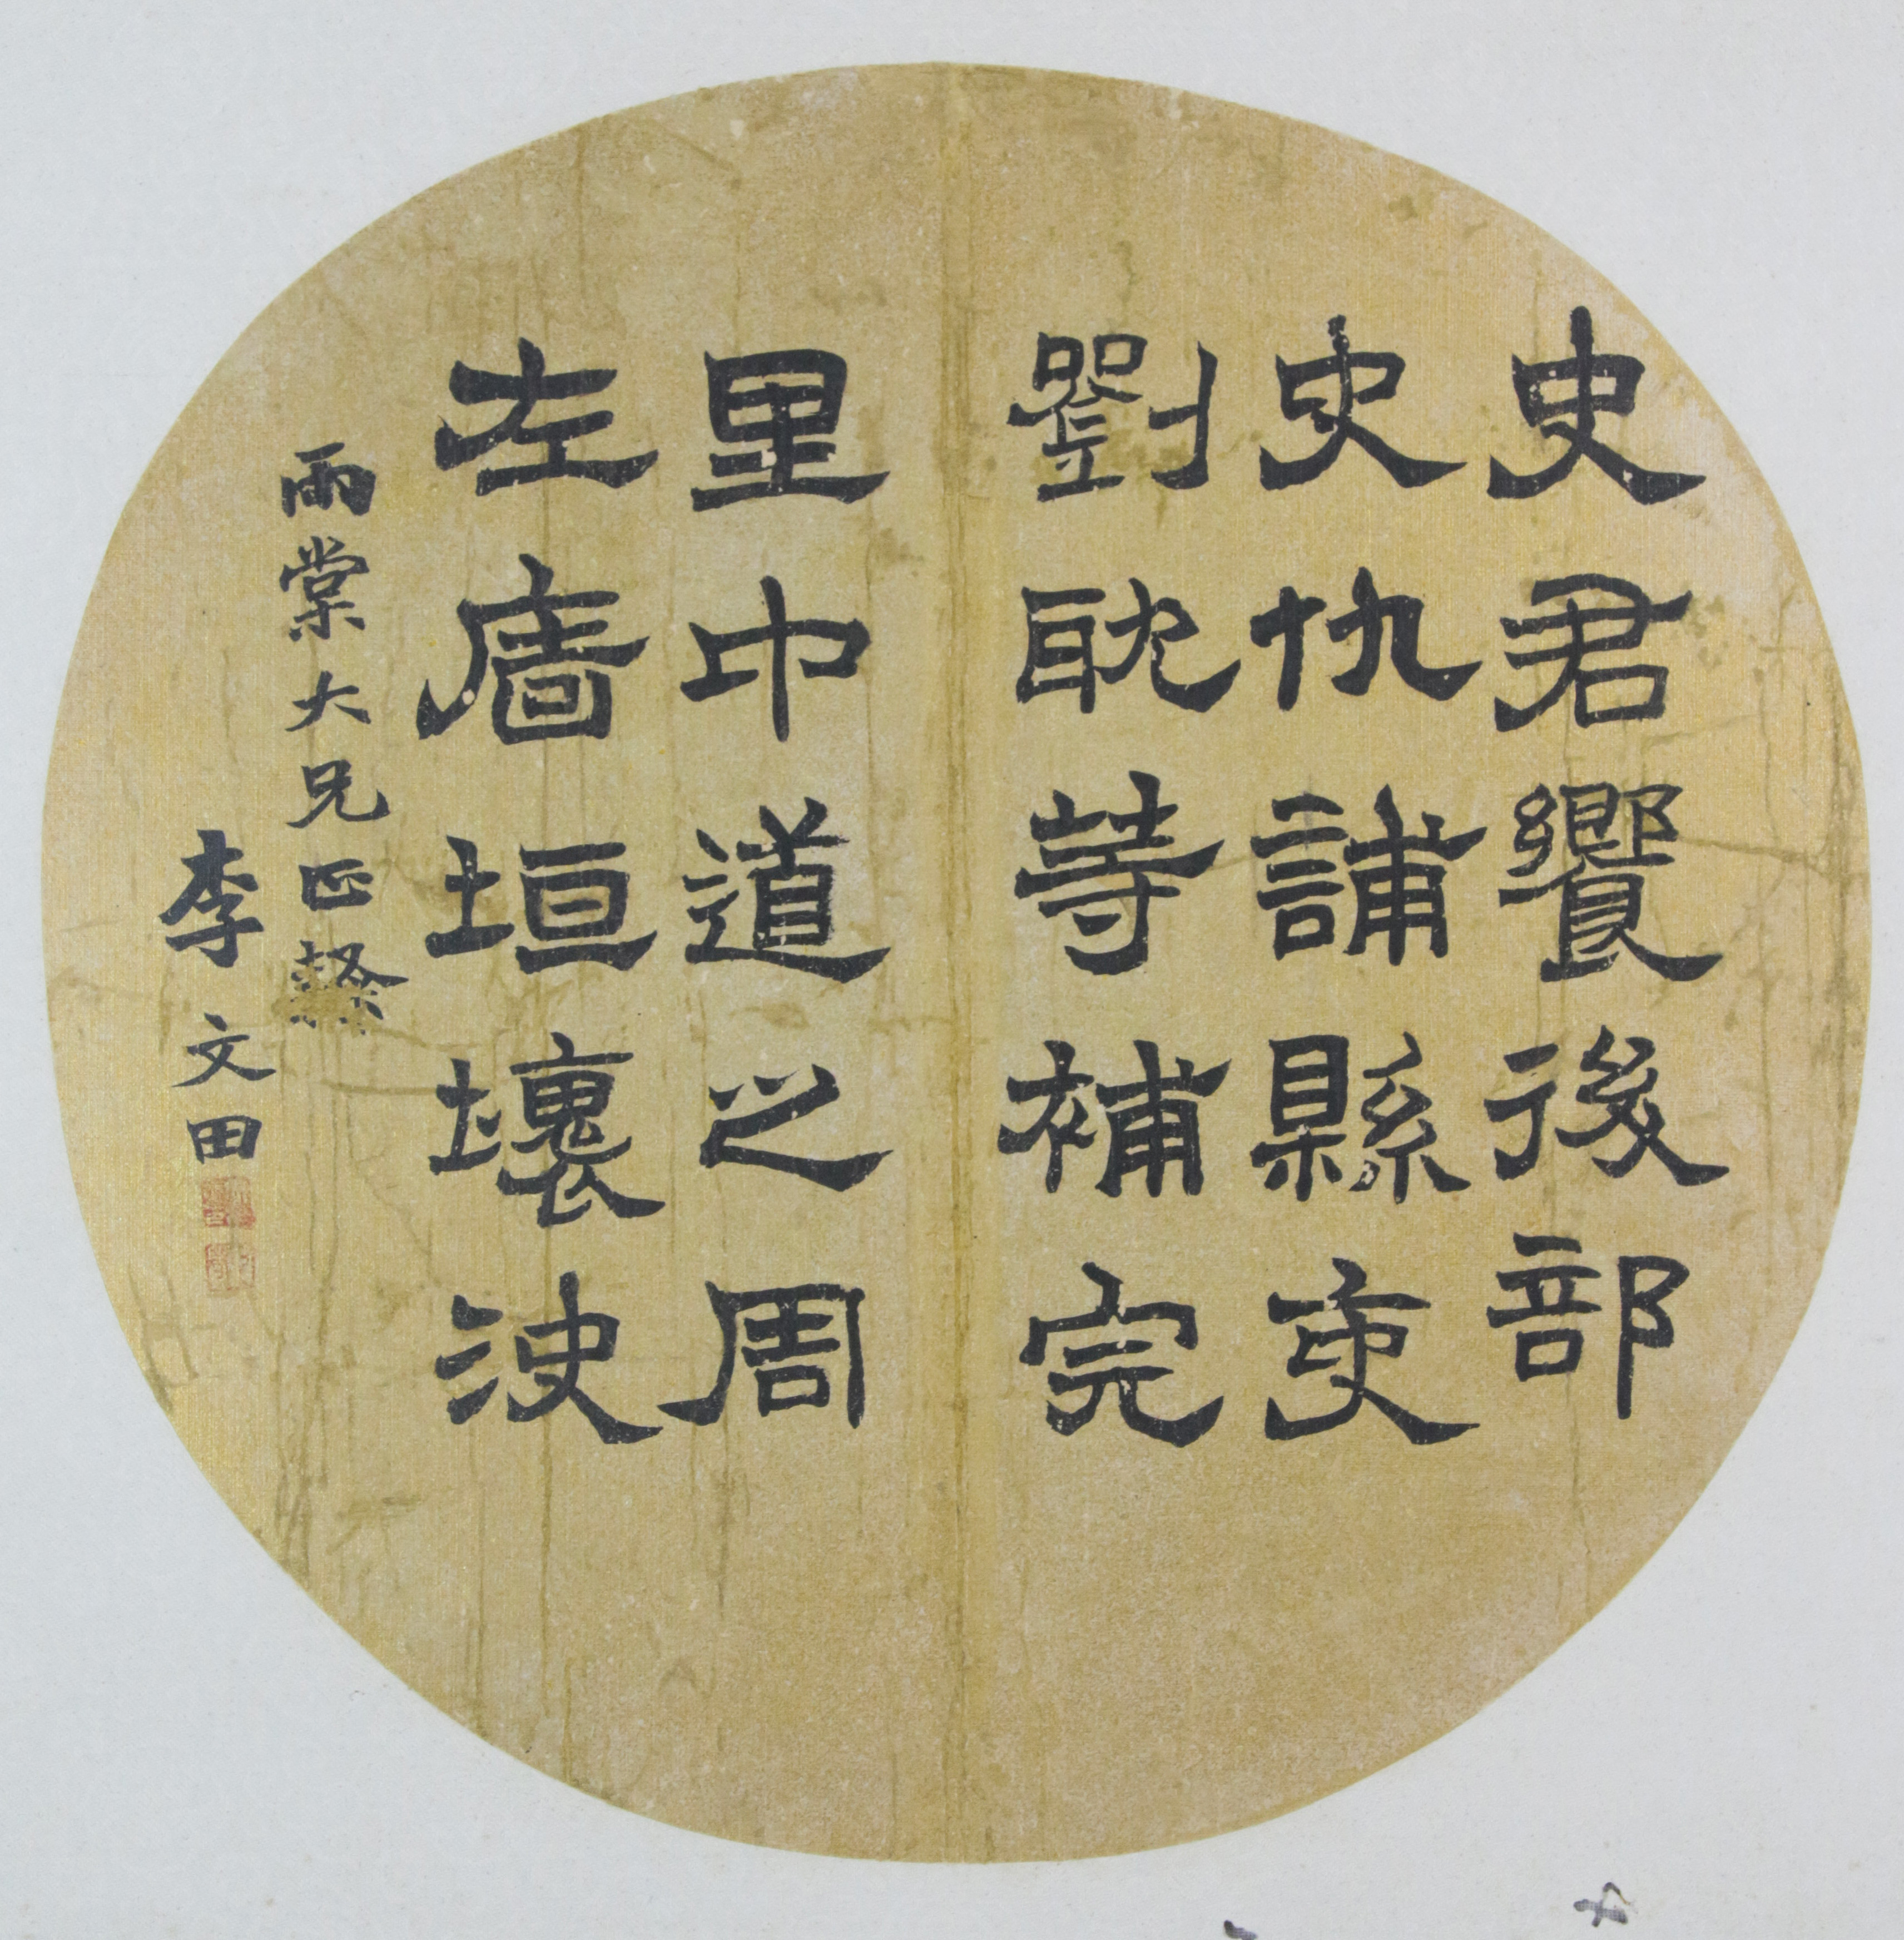 史君饗後部
史仇誧縣吏
劉耽等補完
里中道之周
左廧垣壞決
雨棠大兄正
李文田